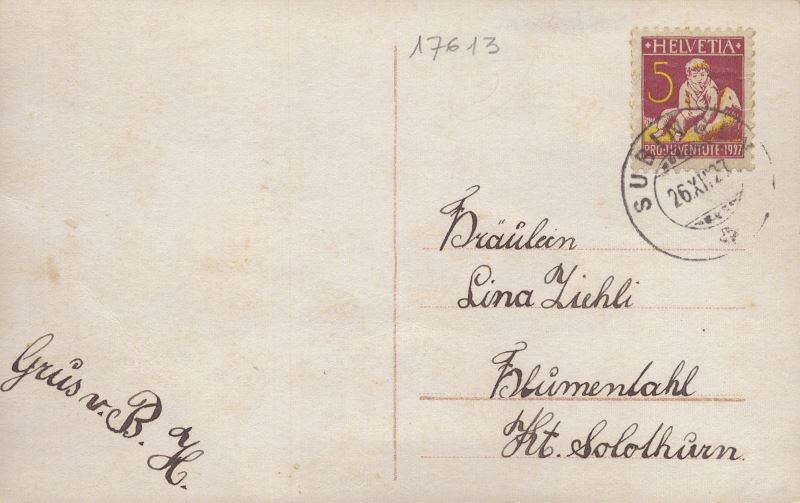 17613
HELVETIA
5
PRO JUVENTUTE · 1927
Fräulein
Lina Ziehli
Flumentahl
Kt. Solothurn.
Grus v. B. H.